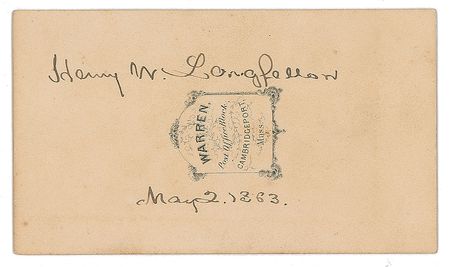 Henry W. Longfellow
WARREN,
Post Office Block,
CAMBRIDGEPORT,
Mass.
May 2. 1863.